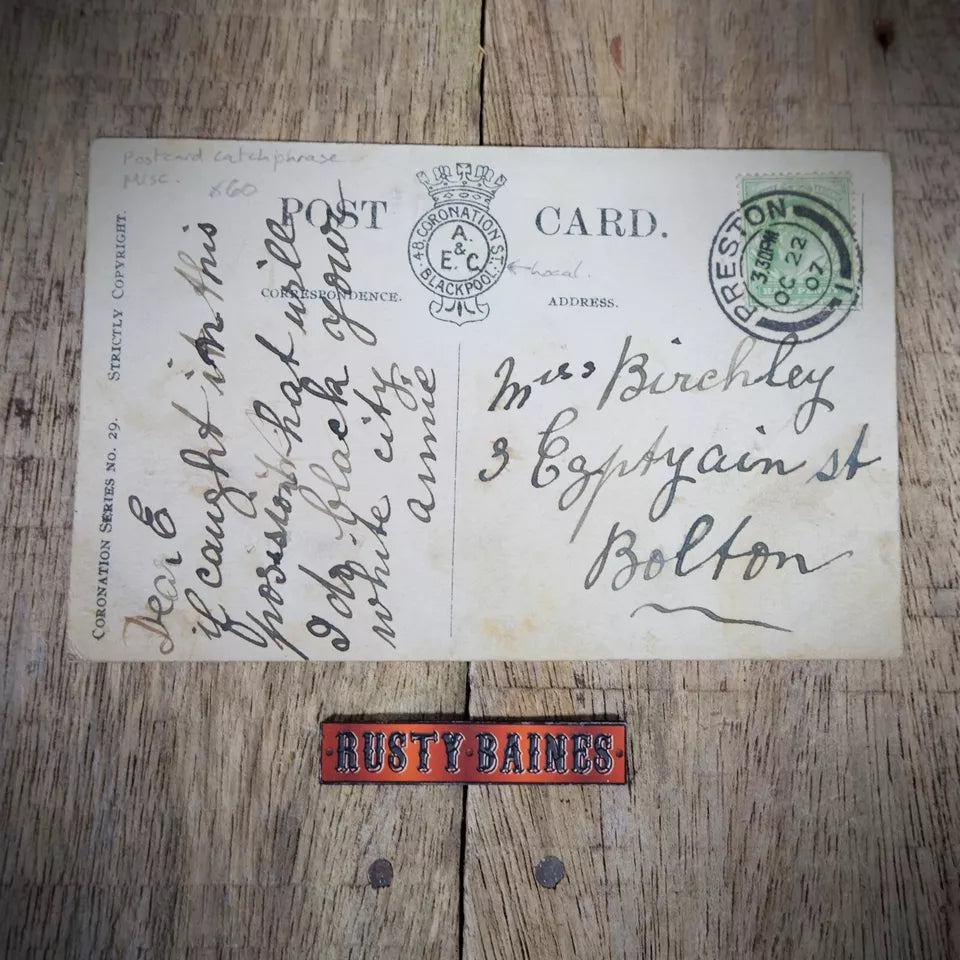 Postcard catchphrase
Misc. x60
POST CARD.
48, CORONATION ST. BLACKPOOL
A.
&
E. C.
←Local.
CORRESPONDENCE.
ADDRESS.
PRESTON
3.30PM
OC 22
07
1
CORONATION SERIES NO. 29. STRICTLY COPYRIGHT.
Dear E
if caught in this
what will
I do. black your
white city
annie
Miss Birchley
3 Egptyain st
Bolton
RUSTY BAINES